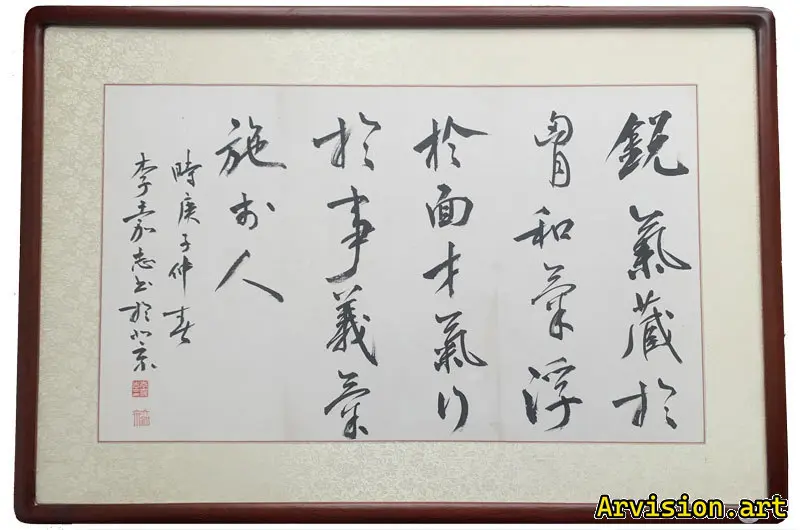 銳氣藏於
胷和氣浮
於面才氣行
於事義氣
施於人
時庚子仲春
李嘉志书於北京
Arvision.art